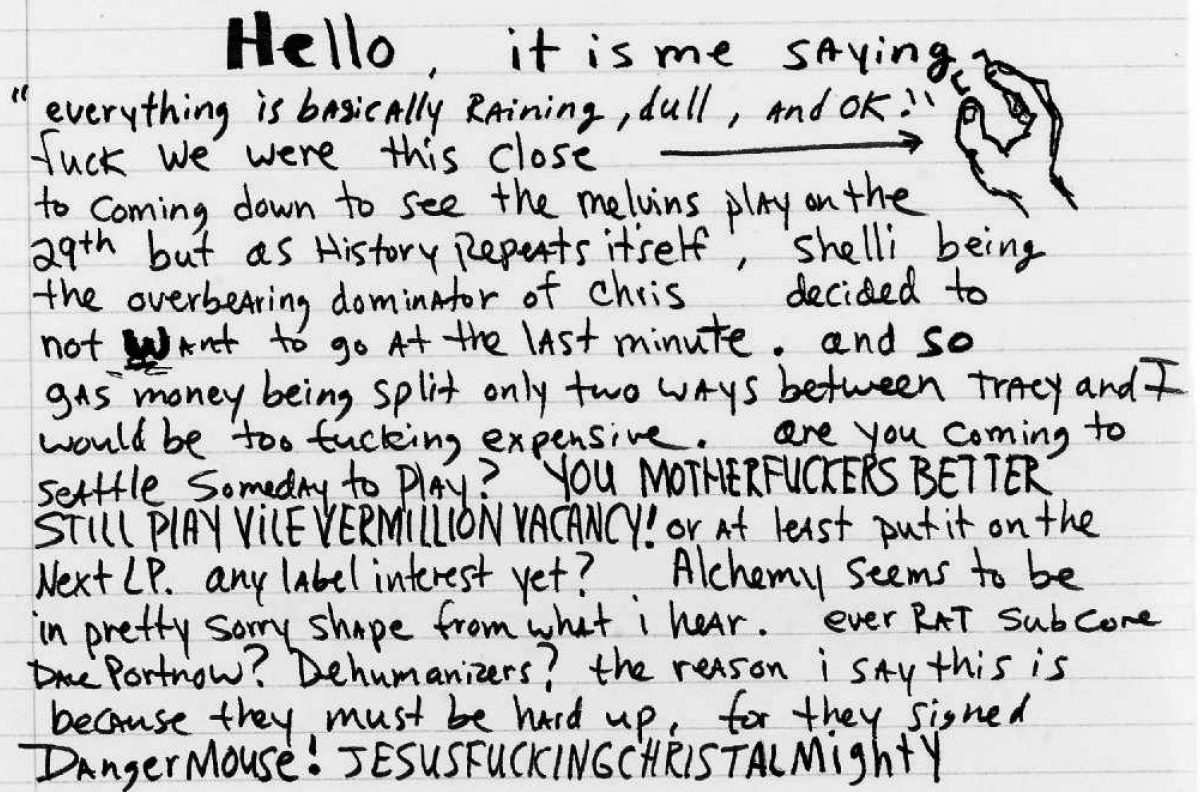 Hello, it is me saying
"everything is basically Raining, dull, and OK."
fuck we were this close
to coming down to see the melvins play on the
29th but as History Repeats itself, shelli being
the overbearing dominator of chris decided to
not want to go at the last minute. and so
gas money being split only two ways between Tracy and I
would be too fucking expensive. are you coming to
seattle someday to Play? YOU MOTHERFUCKERS BETTER
STILL PLAY VILE VERMILLION VACANCY! or at least put it on the
Next LP. any label interest yet? Alchemy seems to be
in pretty sorry shape from what i hear. ever RAT Subcore
Portnow? Dehumanizers? the reason i say this is
because they must be hard up, for they signed
Danger Mouse! JESUSFUCKINGCHRISTALMighty